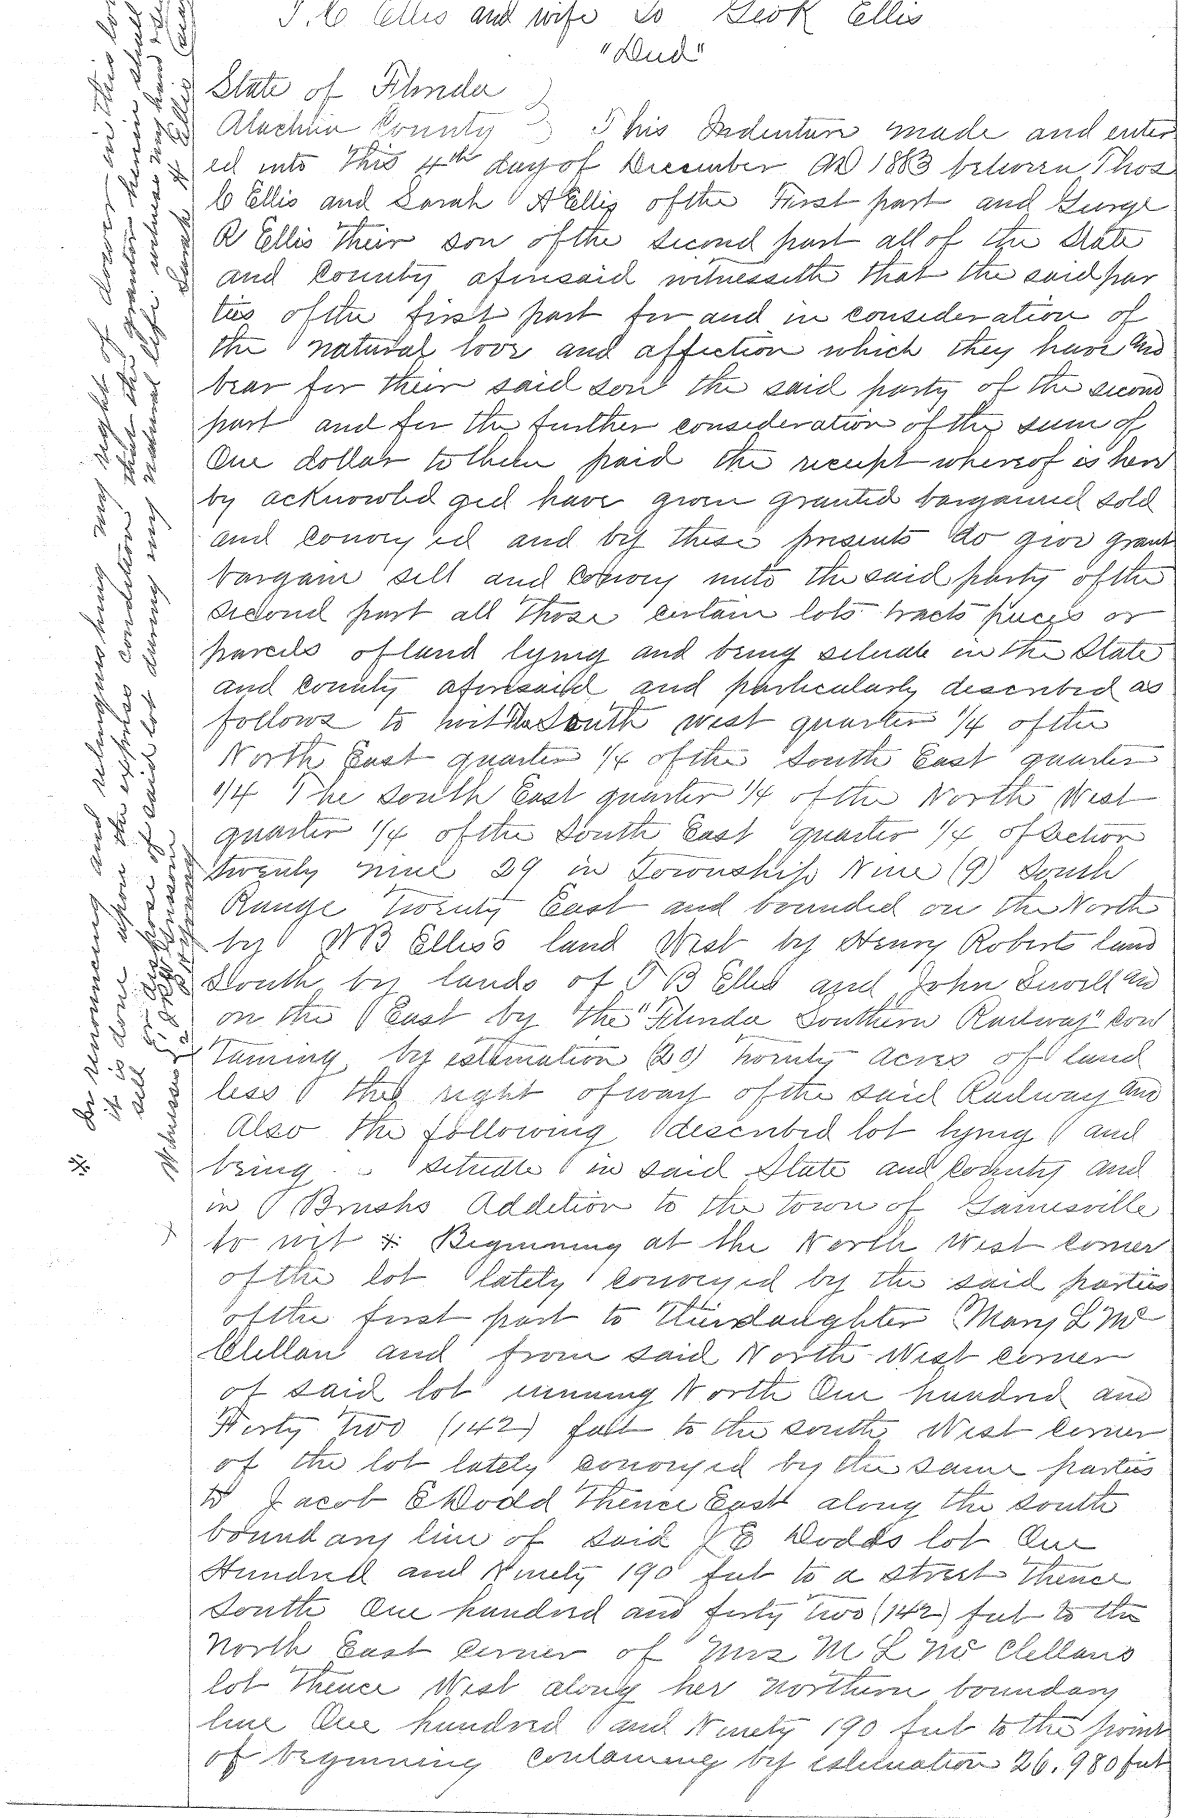 T. C Ellis and wife To Geo R Ellis
"Deed"
State of Florida
Alachua County } This Indenture made and enter
ed into this 4th day of December AD 1883 between Thos
C Ellis and Sarah H Ellis of the First part and George
R Ellis their son of the second part all of the State
and County aforesaid witnesseth that the said par
ties of the first part for and in consideration of
the natural love and affection which they have and
bear for their said son the said party of the second
part and for the further consideration of the sum of
One dollar to them paid the receipt whereof is here
by acknowledged have given granted bargained sold
and conveyed and by these presents do give grant
bargain sell and convey unto the said party of the
second part all those certain lots tracts pieces or
parcels of land lying and being situate in the State
and County aforesaid and particularly described as
follows to wit The South west quarter 1/4 of the
North East quarter 1/4 of the South East quarter
1/4 The South East quarter 1/4 of the North West
quarter 1/4 of the South East quarter 1/4 of Section
twenty nine 29 in Township Nine (9) South
Range Twenty East and bounded on the North
by W B Ellis's land West by Henry Roberts land
South by lands of T B Ellis and John Sewell and
on the East by the "Florida Southern Railway" con
taining by estimation (20) twenty acres of land
less the right of way of the said Railway and
Also the following described lot lying and
being situate in said State and County and
in Brushs Addition to the town of Gainesville
to wit * Beginning at the North West corner
of the lot lately conveyed by the said parties
of the first part to their daughter Mary L Mc
Clellan and from said North West corner
of said lot running North One hundred and
Forty Two (142) feet to the south West corner
of the lot lately conveyed by the same parties
to Jacob E Dodd Thence East along the south
boundary line of said J E Dodds lot One
Hundred and Ninety 190 feet to a street Thence
South One hundred and forty Two (142) feet to the
North East corner of Mrs M L Mc Clellans
lot Thence West along her northern boundary
line One hundred and Ninety 190 feet to the point
of beginning containing by estimation 26.980 feet
* for renouncing and relinquishing my right of dower in this
it is done upon the express condition that the grantor herein shall
sell or dispose of said lot during my natural life witness my hand &
Witnesses Sarah H Ellis